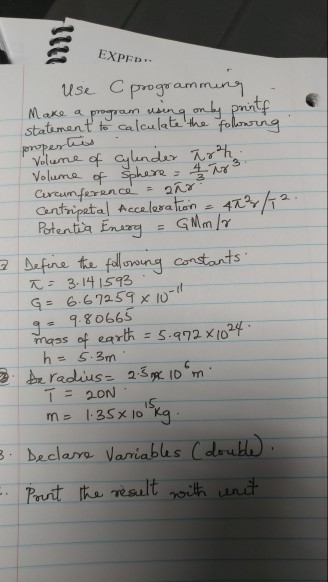 EXPER
Use C programming
Make a program using only printf
statement to calculate the following
properties
Volume of cylinder πr²h.
Volume of Sphere = 4/3 πr³
Circumference = 2πr
Centripetal Acceleration = 4π²r/T².
Potential Energy = GMm/r
Define the following constants.
π = 3.141593
G = 6.67259 × 10⁻¹¹
g = 9.80665
mass of earth = 5.972×10²⁴.
h = 5.3m
radius = 2.5 × 10⁶ m.
T = 20N
m = 1.35×10¹⁵ kg.
3. Declare Variables (double).
Print the result with unit